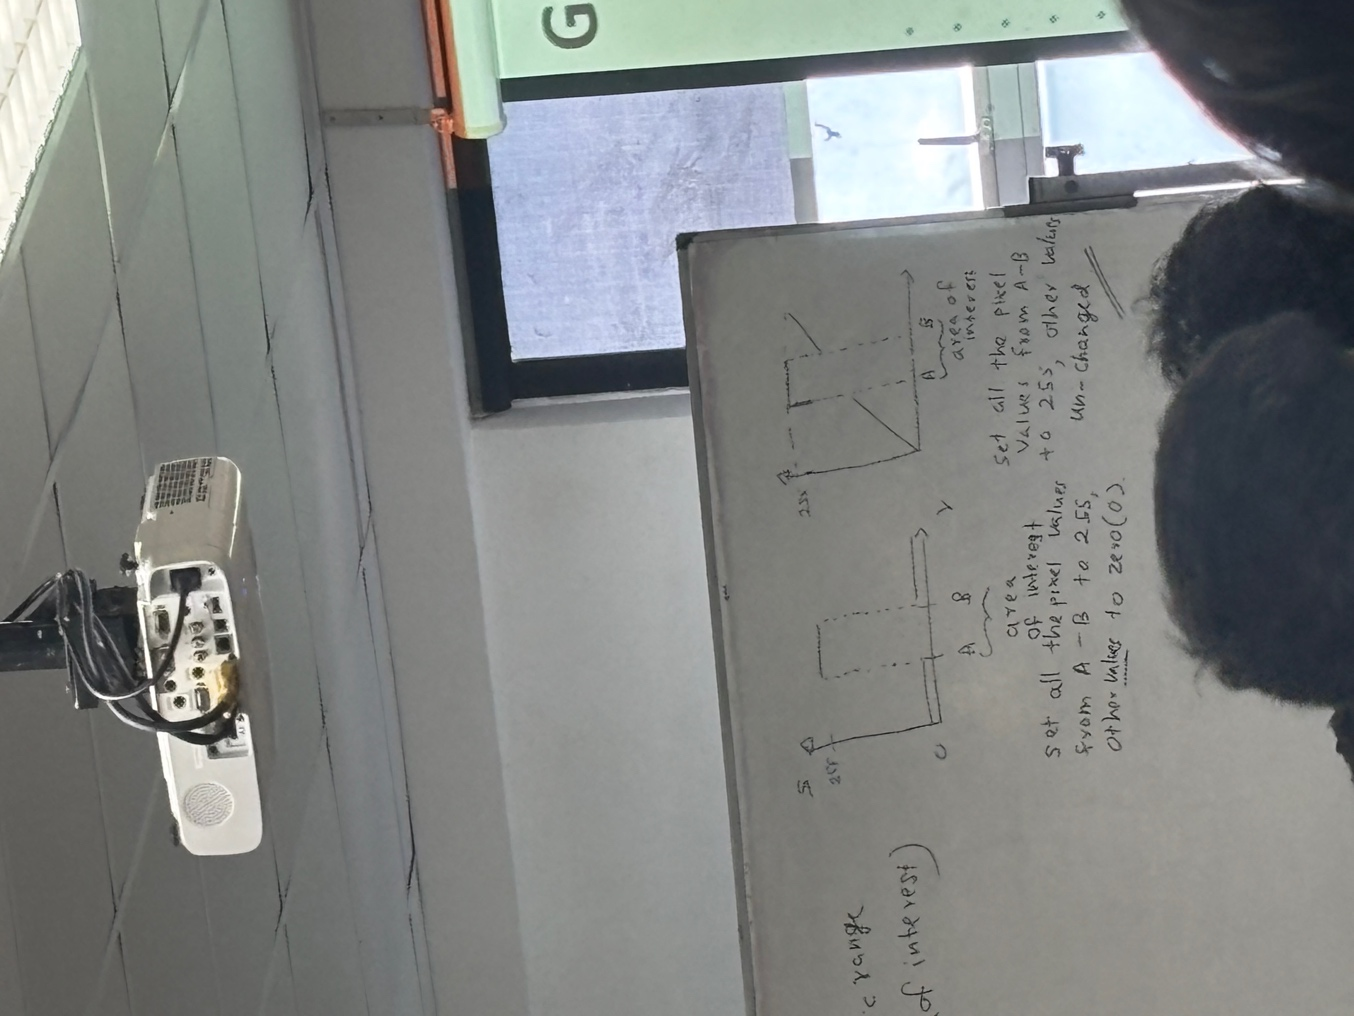 G
c range
of interest)
S
255
0
A B
r
area
of interest
set all the pixel values
from A - B to 255,
Other values to zero(0).
255
A B
area of
interest
Set all the pixel
values from A-B
to 255, other values
un-changed